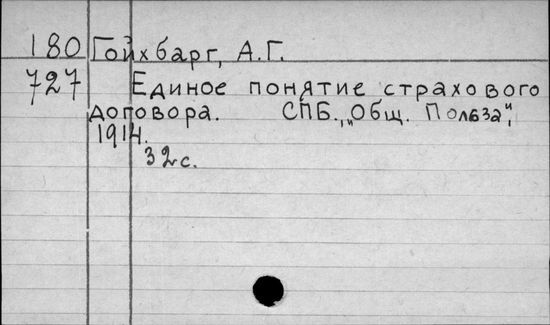 180 Гойхбарг, А.Г.
727 Единое понятие страхового
договора. СПБ., „Общ. Польза",
1914.
32с.